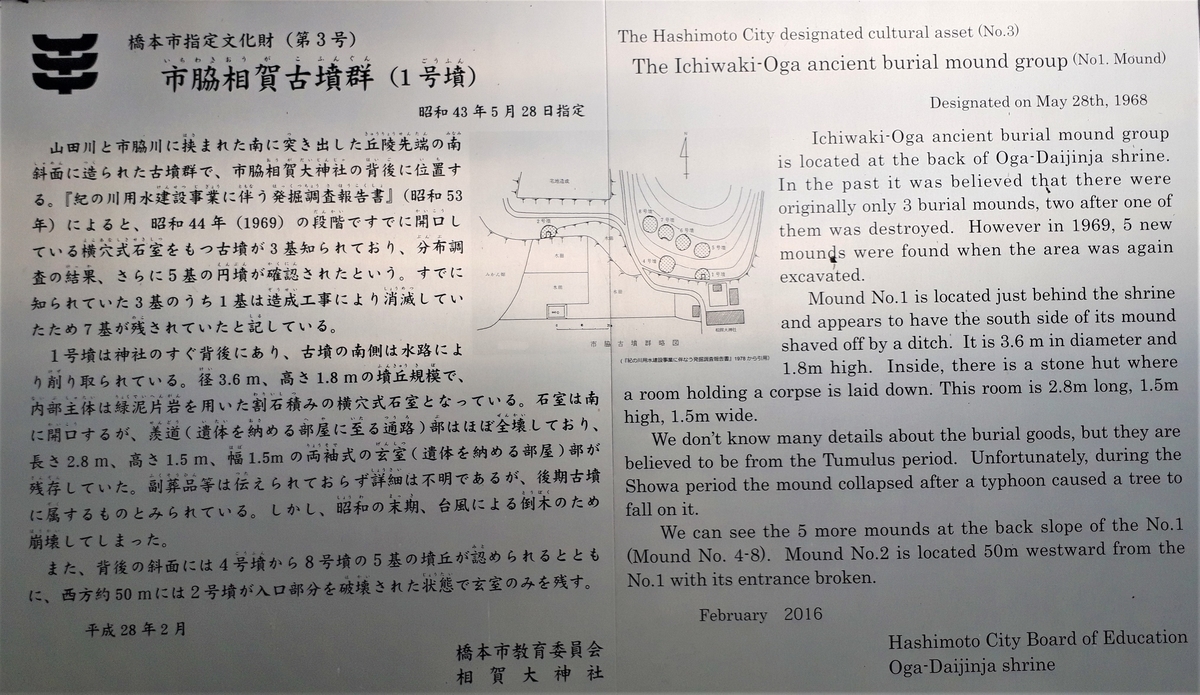 橋本市指定文化財（第３号）
いちわきおうがこふんぐん
ごうふん
市脇相賀古墳群（１号墳）
昭和 43 年 5 月 28 日指定
山田川と市脇川に挟まれた南に突き出した丘陵先端の南
斜面に造られた古墳群で、市脇相賀大神社の背後に位置す
る。『紀の川用水建設事業に伴う発掘調査報告書』（昭和 53
年）によると、昭和 44 年（1969）の段階ですでに開口し
ている横穴式石室をもつ古墳が 3 基知られており、分布調
査の結果、さらに 5 基の円墳が確認されたという。すでに
知られていた 3 基のうち 1 基は造成工事により消滅してい
たため 7 基が残されていたと記している。
１号墳は神社のすぐ背後にあり、古墳の南側は水路によ
り削り取られている。径 3.6 m、高さ 1.8 m の墳丘規模で、
内部主体は緑泥片岩を用いた割石積みの横穴式石室となっている。石室は南
に開口するが、羨道（遺体を納める部屋に至る通路）部はほぼ全壊しており、
長さ 2.8 m、高さ 1.5 m、幅 1.5m の両袖式の玄室（遺体を納める部屋）部が
残存していた。副葬品等は伝えられておらず詳細は不明であるが、後期古墳
に属するものとみられている。しかし、昭和の末期、台風による倒木のため
崩壊してしまった。
また、背後の斜面には 4 号墳から 8 号墳の 5 基の墳丘が認められるととも
に、西方約 50 m には 2 号墳が入口部分を破壊された状態で玄室のみを残す。
平成 28 年 2 月
橋本市教育委員会
相賀大神社
N
宅地造成
2号墳
水路
水田
水田
水田
8号墳
7号墳
6号墳
5号墳
4号墳
1号墳
相賀大神社
市脇古墳群略図
（『紀の川用水建設事業に伴なう発掘調査報告書』1978 から引用）
The Hashimoto City designated cultural asset (No.3)
The Ichiwaki-Oga ancient burial mound group (No1. Mound)
Designated on May 28th, 1968
Ichiwaki-Oga ancient burial mound group
is located at the back of Oga-Daijinja shrine.
In the past it was believed that there were
originally only 3 burial mounds, two after one of
them was destroyed. However in 1969, 5 new
mounds were found when the area was again
excavated.
Mound No.1 is located just behind the shrine
and appears to have the south side of its mound
shaved off by a ditch. It is 3.6 m in diameter and
1.8m high. Inside, there is a stone hut where
a room holding a corpse is laid down. This room is 2.8m long, 1.5m
high, 1.5m wide.
We don't know many details about the burial goods, but they are
believed to be from the Tumulus period. Unfortunately, during the
Showa period the mound collapsed after a typhoon caused a tree to
fall on it.
We can see the 5 more mounds at the back slope of the No.1
(Mound No. 4-8). Mound No.2 is located 50m westward from the
No.1 with its entrance broken.
February 2016
Hashimoto City Board of Education
Oga-Daijinja shrine